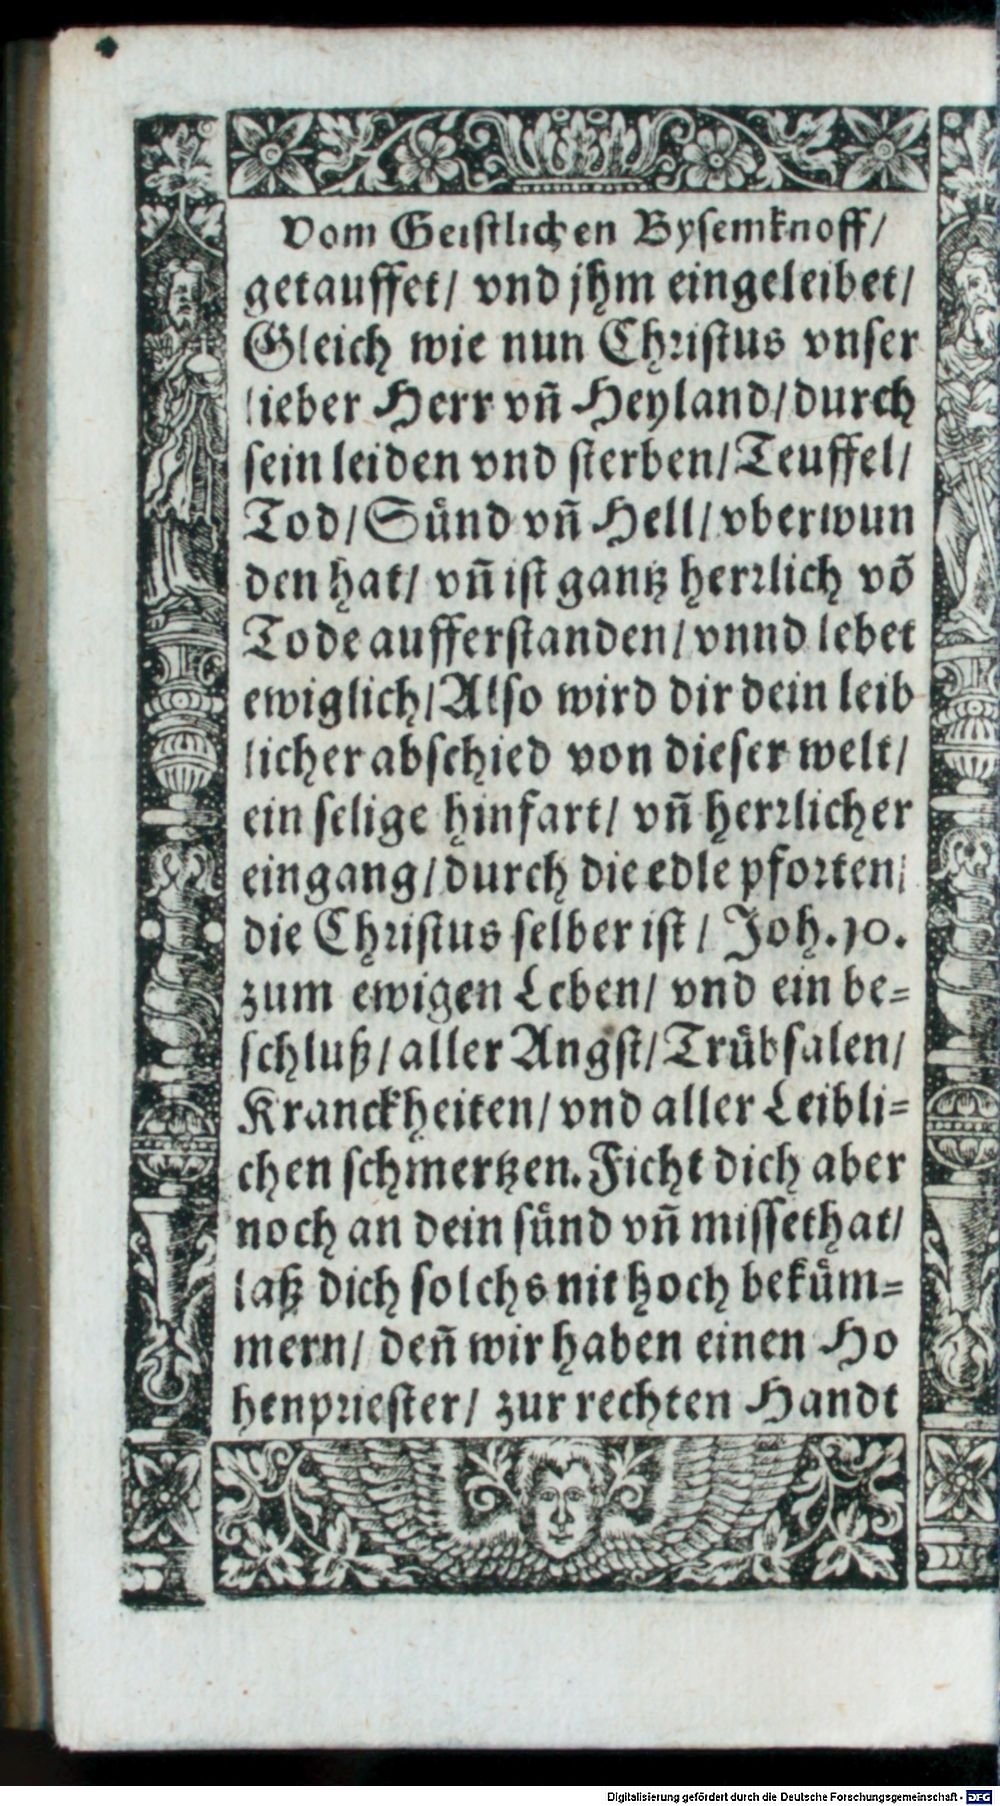 Vom Geistlichen Bysemknoff/
getauffet/ vnd jhm eingeleibet/
Gleich wie nun Christus vnser
lieber Herr vñ Heyland/ durch
sein leiden vnd sterben/ Teuffel/
Tod/ Sünd vñ Hell/ vberwun
den hat/ vñ ist gantz herrlich võ
Tode aufferstanden/ vnnd lebet
ewiglich/ Also wird dir dein leib
licher abschied von dieser welt/
ein selige hinfart/ vñ herrlicher
eingang/ durch die edle pforten/
die Christus selber ist/ Joh. 10.
zum ewigen Leben/ vnd ein be=
schluß/ aller Angst/ Trübsalen/
Kranckheiten/ vnd aller Leibli=
chen schmertzen. Ficht dich aber
noch an dein sünd vñ missethat/
laß dich solchs nit hoch beküm=
mern/ deñ wir haben einen Ho
henpriester/ zur rechten Handt
Digitalisierung gefördert durch die Deutsche Forschungsgemeinschaft - DFG